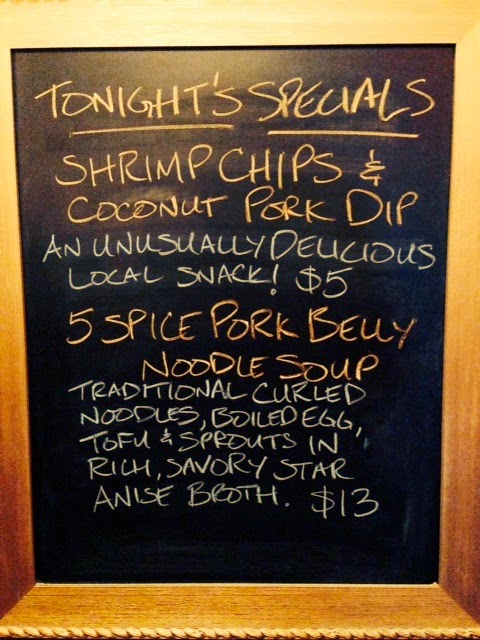 TONIGHT'S SPECIALS
SHRIMP CHIPS &
COCONUT PORK DIP
AN UNUSUALLY DELICIOUS
LOCAL SNACK! $5
5 SPICE PORK BELLY
NOODLE SOUP
TRADITIONAL CURLED
NOODLES, BOILED EGG,
TOFU & SPROUTS IN
RICH, SAVORY STAR
ANISE BROTH. $13